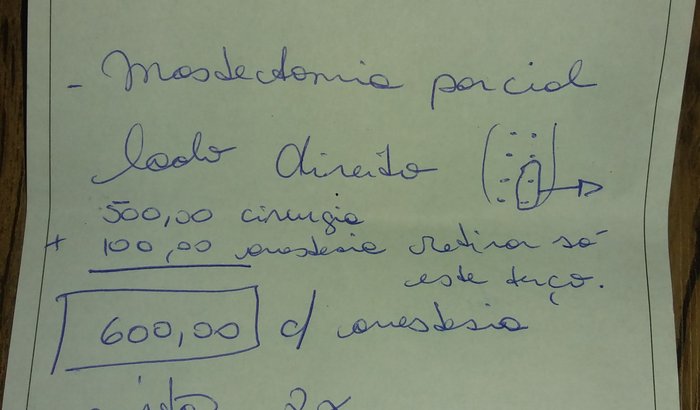 - Mastectomia parcial
lado direito
500,00 cirurgia
+ 100,00 anestesia retirar só
este terço.
600,00 c/ anestesia
2x